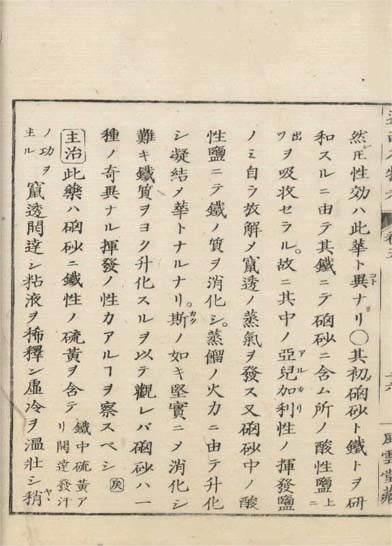 然𪜈性効ハ此華ト異ナリ〇其初𥑻砂ト鐵トヲ研
和スルニ由テ其鐵ニテ𥑻砂ニ含ム所ノ酸性鹽上ニ
出ツヲ吸收セラル。故ニ其中ノ亞兒加利性ノ揮發鹽
アルカリ
ノミ自ラ放解メ竄透ノ蒸氣ヲ發ス又𥑻砂中ノ酸
性鹽ニテ鐵ノ質ヲ消化シ。蒸餾ノ火力ニ由テ升化
シ凝結メ華トナルナリ。斯ノ如キ堅實ニメ消化シ
カク
難キ鐵質ヲヨク升化スルヲ以テ觀レバ𥑻砂ハ一
種ノ奇異ナル揮發ノ性カアルヿヲ察スベシ
主治此藥ハ𥑻砂ニ鐵性ノ硫黄ヲ含テリ
鐵中硫黄ア
リ開達發汗
ノ功ヲ
主ル
竄透開達シ粘液ヲ稀釋シ虛冷ヲ溫壯シ稍
ヤヽ
風雲堂藏